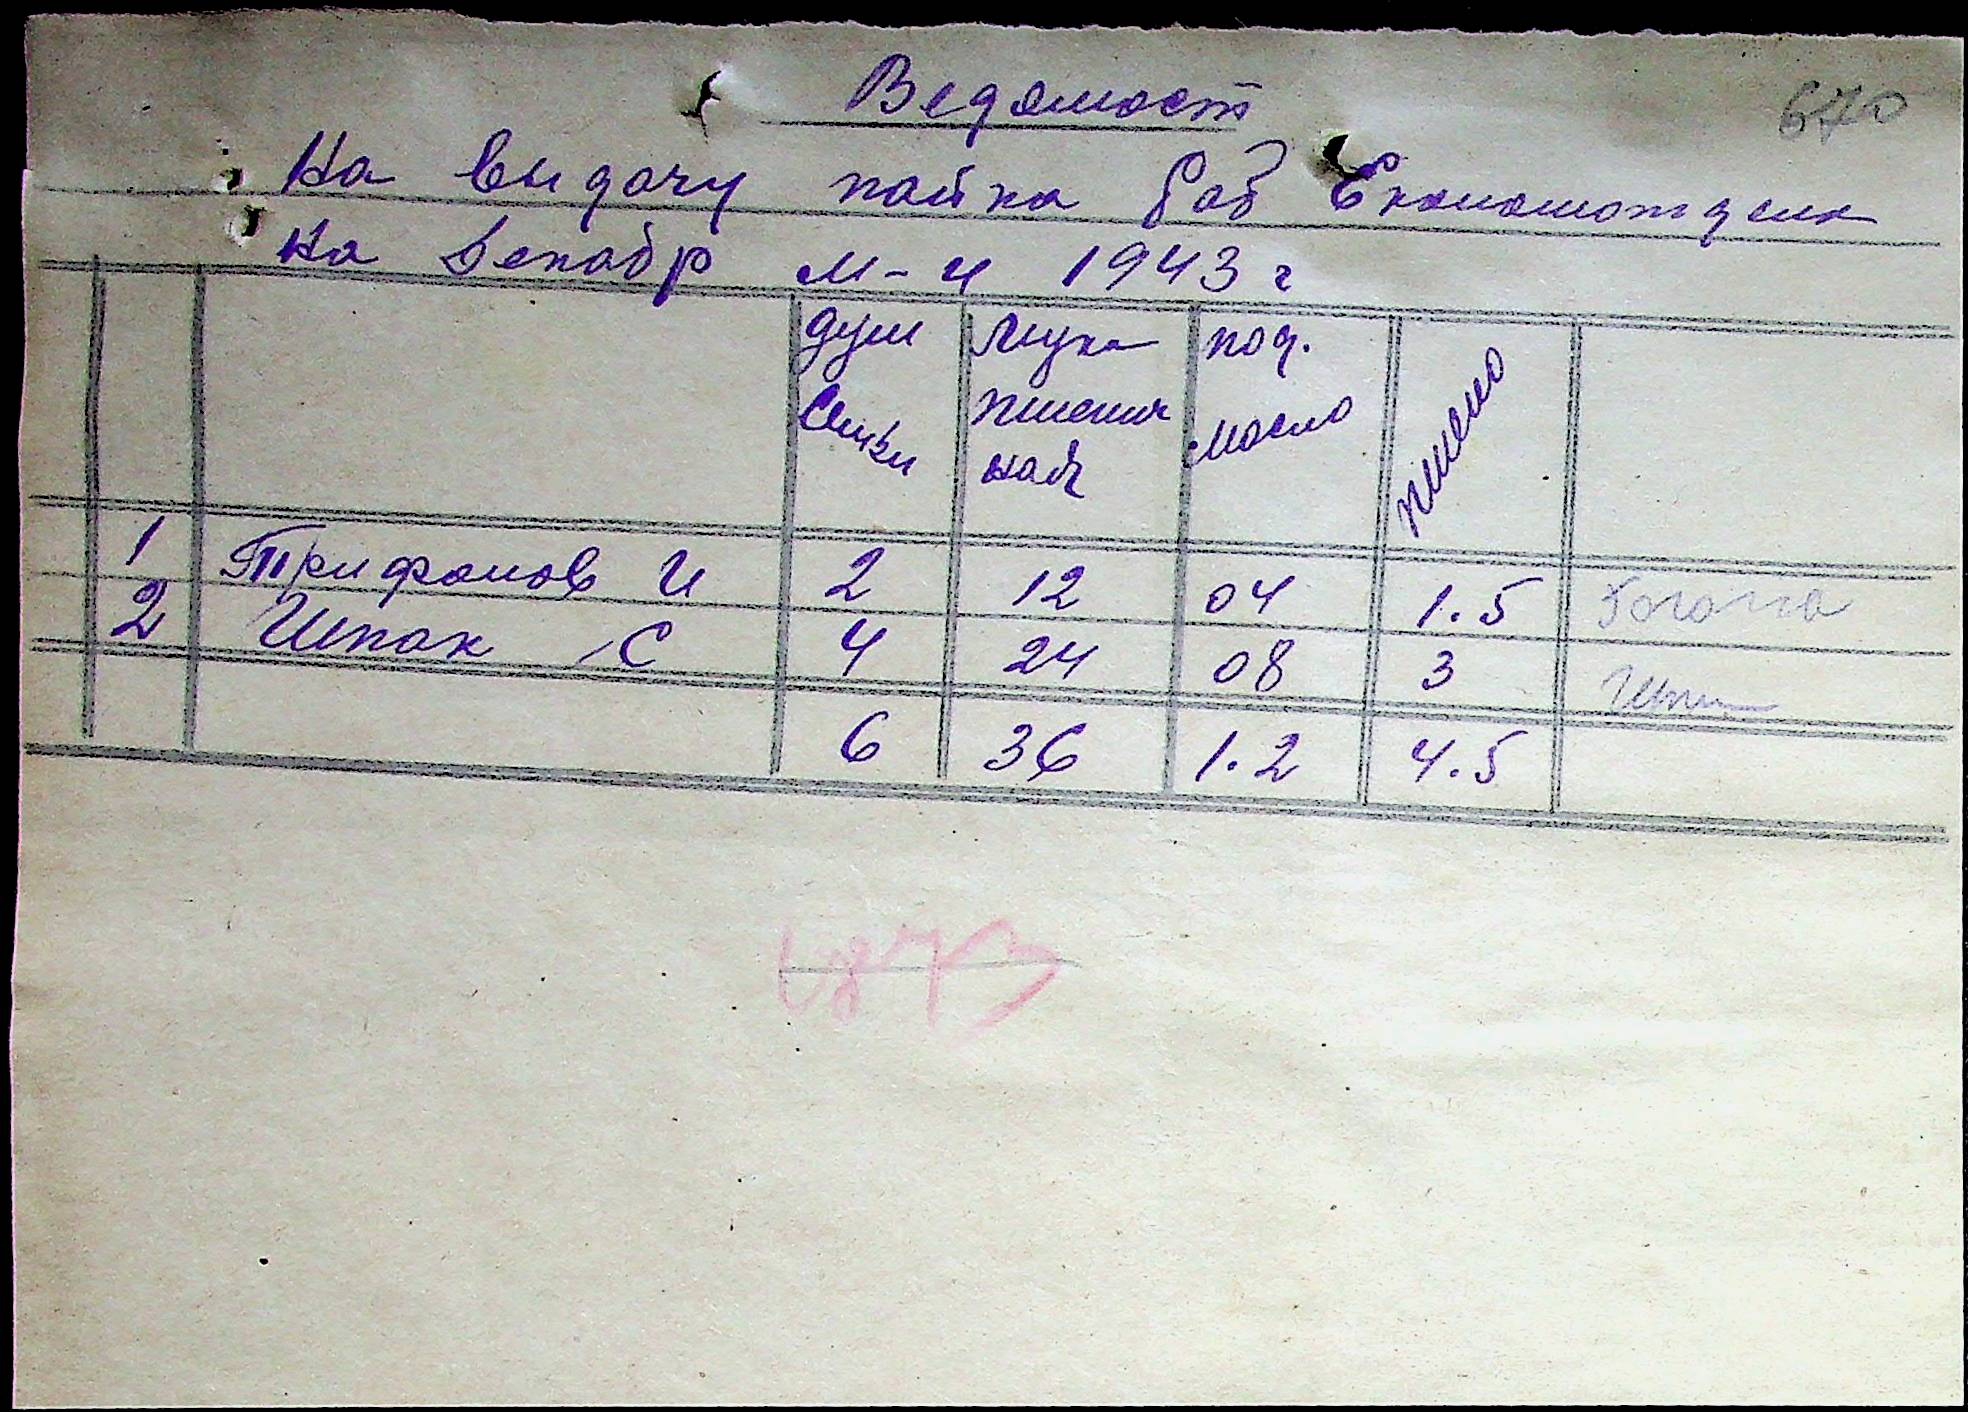 670
Ведомост
На выдачу пайка Раб Економотдела
На Декабр м-ц 1943 г
душ Мука под. пшено
Семьи пшенич масло
ной
1 Трифонов И 2 12 04 1.5
2 Шпак С 4 24 08 3
6 36 1.2 4.5